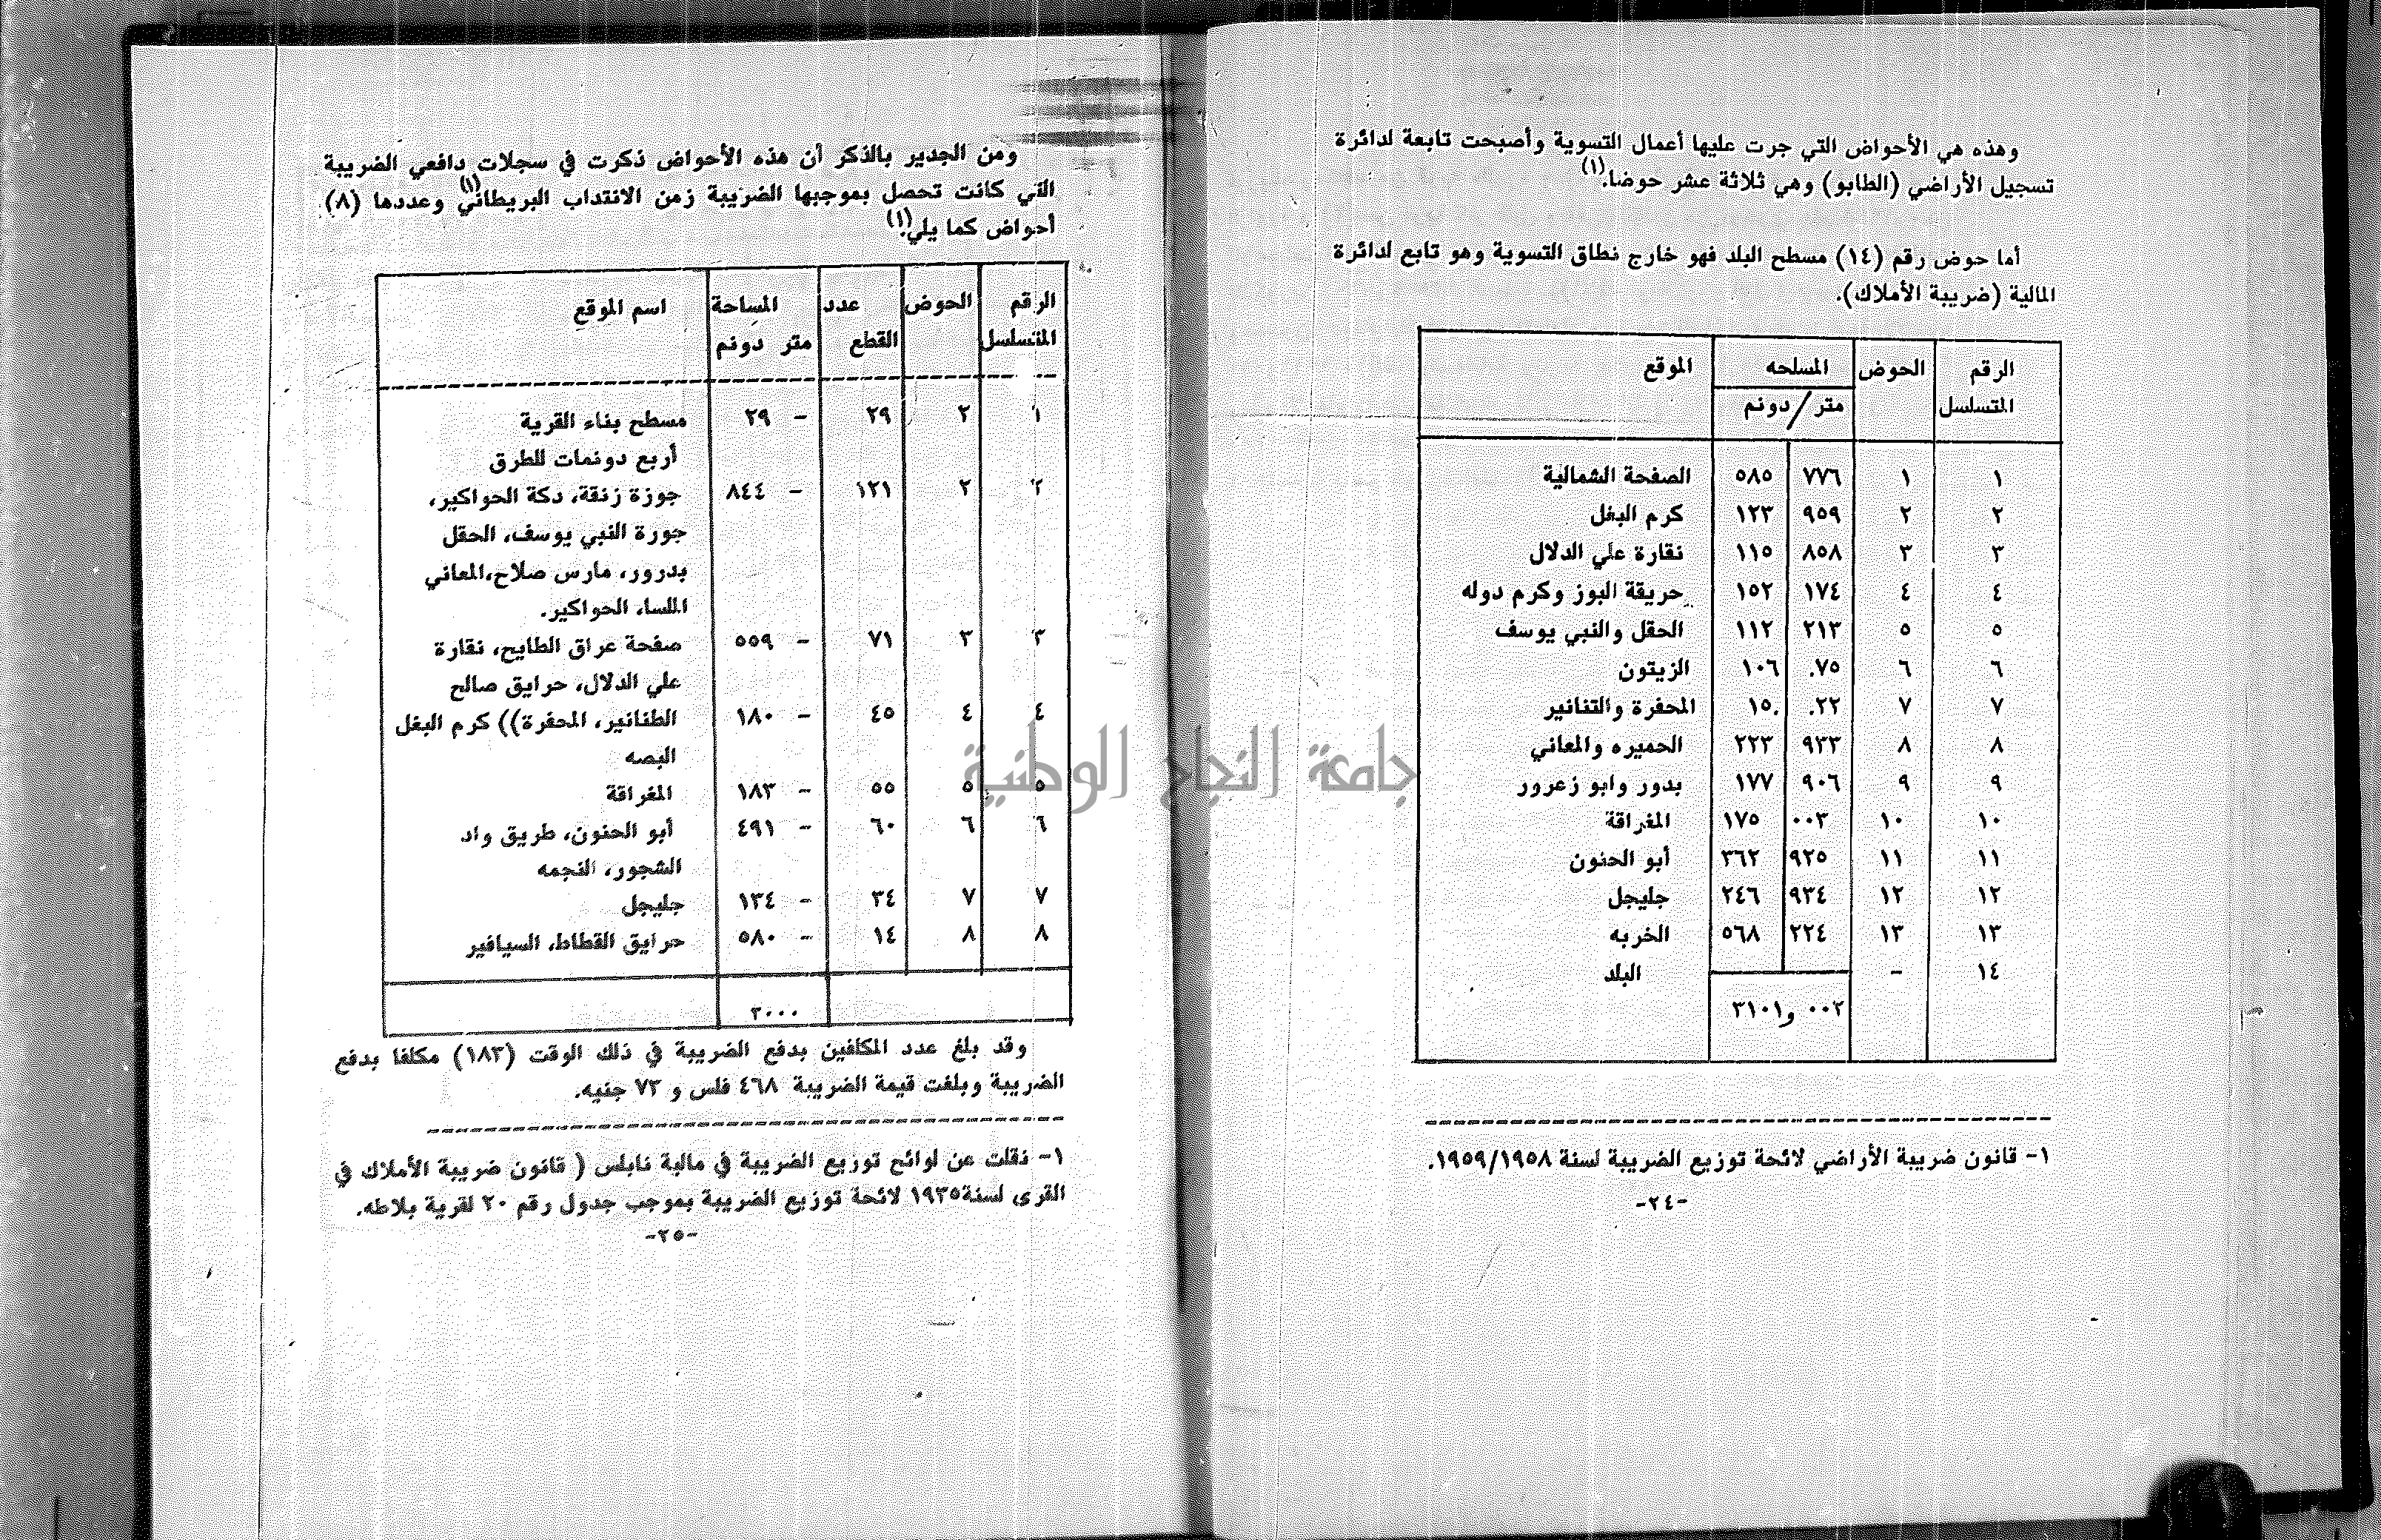 وهذه هي الأحواض التي جرت عليها أعمال التسوية وأصبحت تابعة لدائرة
تسجيل الأراضي (الطابو) وهي ثلاثة عشر حوضا.(١)
أما حوض رقم (١٤) مسطح البلد فهو خارج نطاق التسوية وهو تابع لدائرة
المالية (ضريبة الأملاك).
الرقم الحوض المسلحه الموقع
المتسلسل متر / دونم
١ ١ ٧٧٦ ٥٨٥ الصفحة الشمالية
٢ ٢ ٩٥٩ ١٢٣ كرم البغل
٣ ٣ ٨٥٨ ١١٥ نقارة علي الدلال
٤ ٤ ١٧٤ ١٥٢ حريقة البوز وكرم دوله
٥ ٥ ٢١٣ ١١٢ الحقل والنبي يوسف
٦ ٦ ٧٥. ١٠٦ الزيتون
٧ ٧ ٢٢. ١٥. المحفرة والتنانير
٨ ٨ ٩٣٣ ٢٢٣ الحميره والمعاني
٩ ٩ ٩٠٦ ١٧٧ بدور وابو زعرور
١٠ ١٠ ٠٠٣ ١٧٥ المغراقة
١١ ١١ ٩٢٥ ٣٦٢ أبو الحنون
١٢ ١٢ ٩٣٤ ٢٤٦ جليجل
١٣ ١٣ ٢٢٤ ٥٦٨ الخربه
١٤ - البلد
٠٠٢ و٣١٠١
١- قانون ضريبة الأراضي لائحة توزيع الضريبة لسنة ١٩٥٩/١٩٥٨.
-٢٤-
ومن الجدير بالذكر أن هذه الأحواض ذكرت في سجلات دافعي الضريبة
التي كانت تحصل بموجبها الضريبة زمن الانتداب البريطاني(١) وعددها (٨)
أحواض كما يلي.(١)
الرقم الحوض عدد المساحة اسم الموقع
المتسلسل القطع متر دونم
١ ٢ ٢٩ - ٢٩ مسطح بناء القرية
أربع دونمات للطرق
٢ ٢ ١٢١ - ٨٤٤ جوزة زنقة، دكة الحواكير،
جورة النبي يوسف، الحقل
بدرور، مارس صلاح،المعاني
الملسا، الحواكير.
٣ ٣ ٧١ - ٥٥٩ صفحة عراق الطايح، نقارة
علي الدلال، حرايق صالح
٤ ٤ ٤٥ - ١٨٠ الطنانير، المحفرة)) كرم البغل
البصه
٥ ٥ ٥٥ - ١٨٣ المغراقة
٦ ٦ ٦٠ - ٤٩١ أبو الحنون، طريق واد
الشجور، النجمه
٧ ٧ ٣٤ - ١٣٤ جليجل
٨ ٨ ١٤ - ٥٨٠ حرايق القطاط، السيافير
٣٠٠٠
وقد بلغ عدد المكلفين بدفع الضريبة في ذلك الوقت (١٨٣) مكلفا بدفع
الضريبة وبلغت قيمة الضريبة ٤٦٨ فلس و ٧٣ جنيه.
١- نقلت عن لوائح توزيع الضريبة في مالية نابلس ( قانون ضريبة الأملاك في
القرى لسنة١٩٣٥ لائحة توزيع الضريبة بموجب جدول رقم ٢٠ لقرية بلاطه.
-٢٥-
جامعة النجاح الوطنية